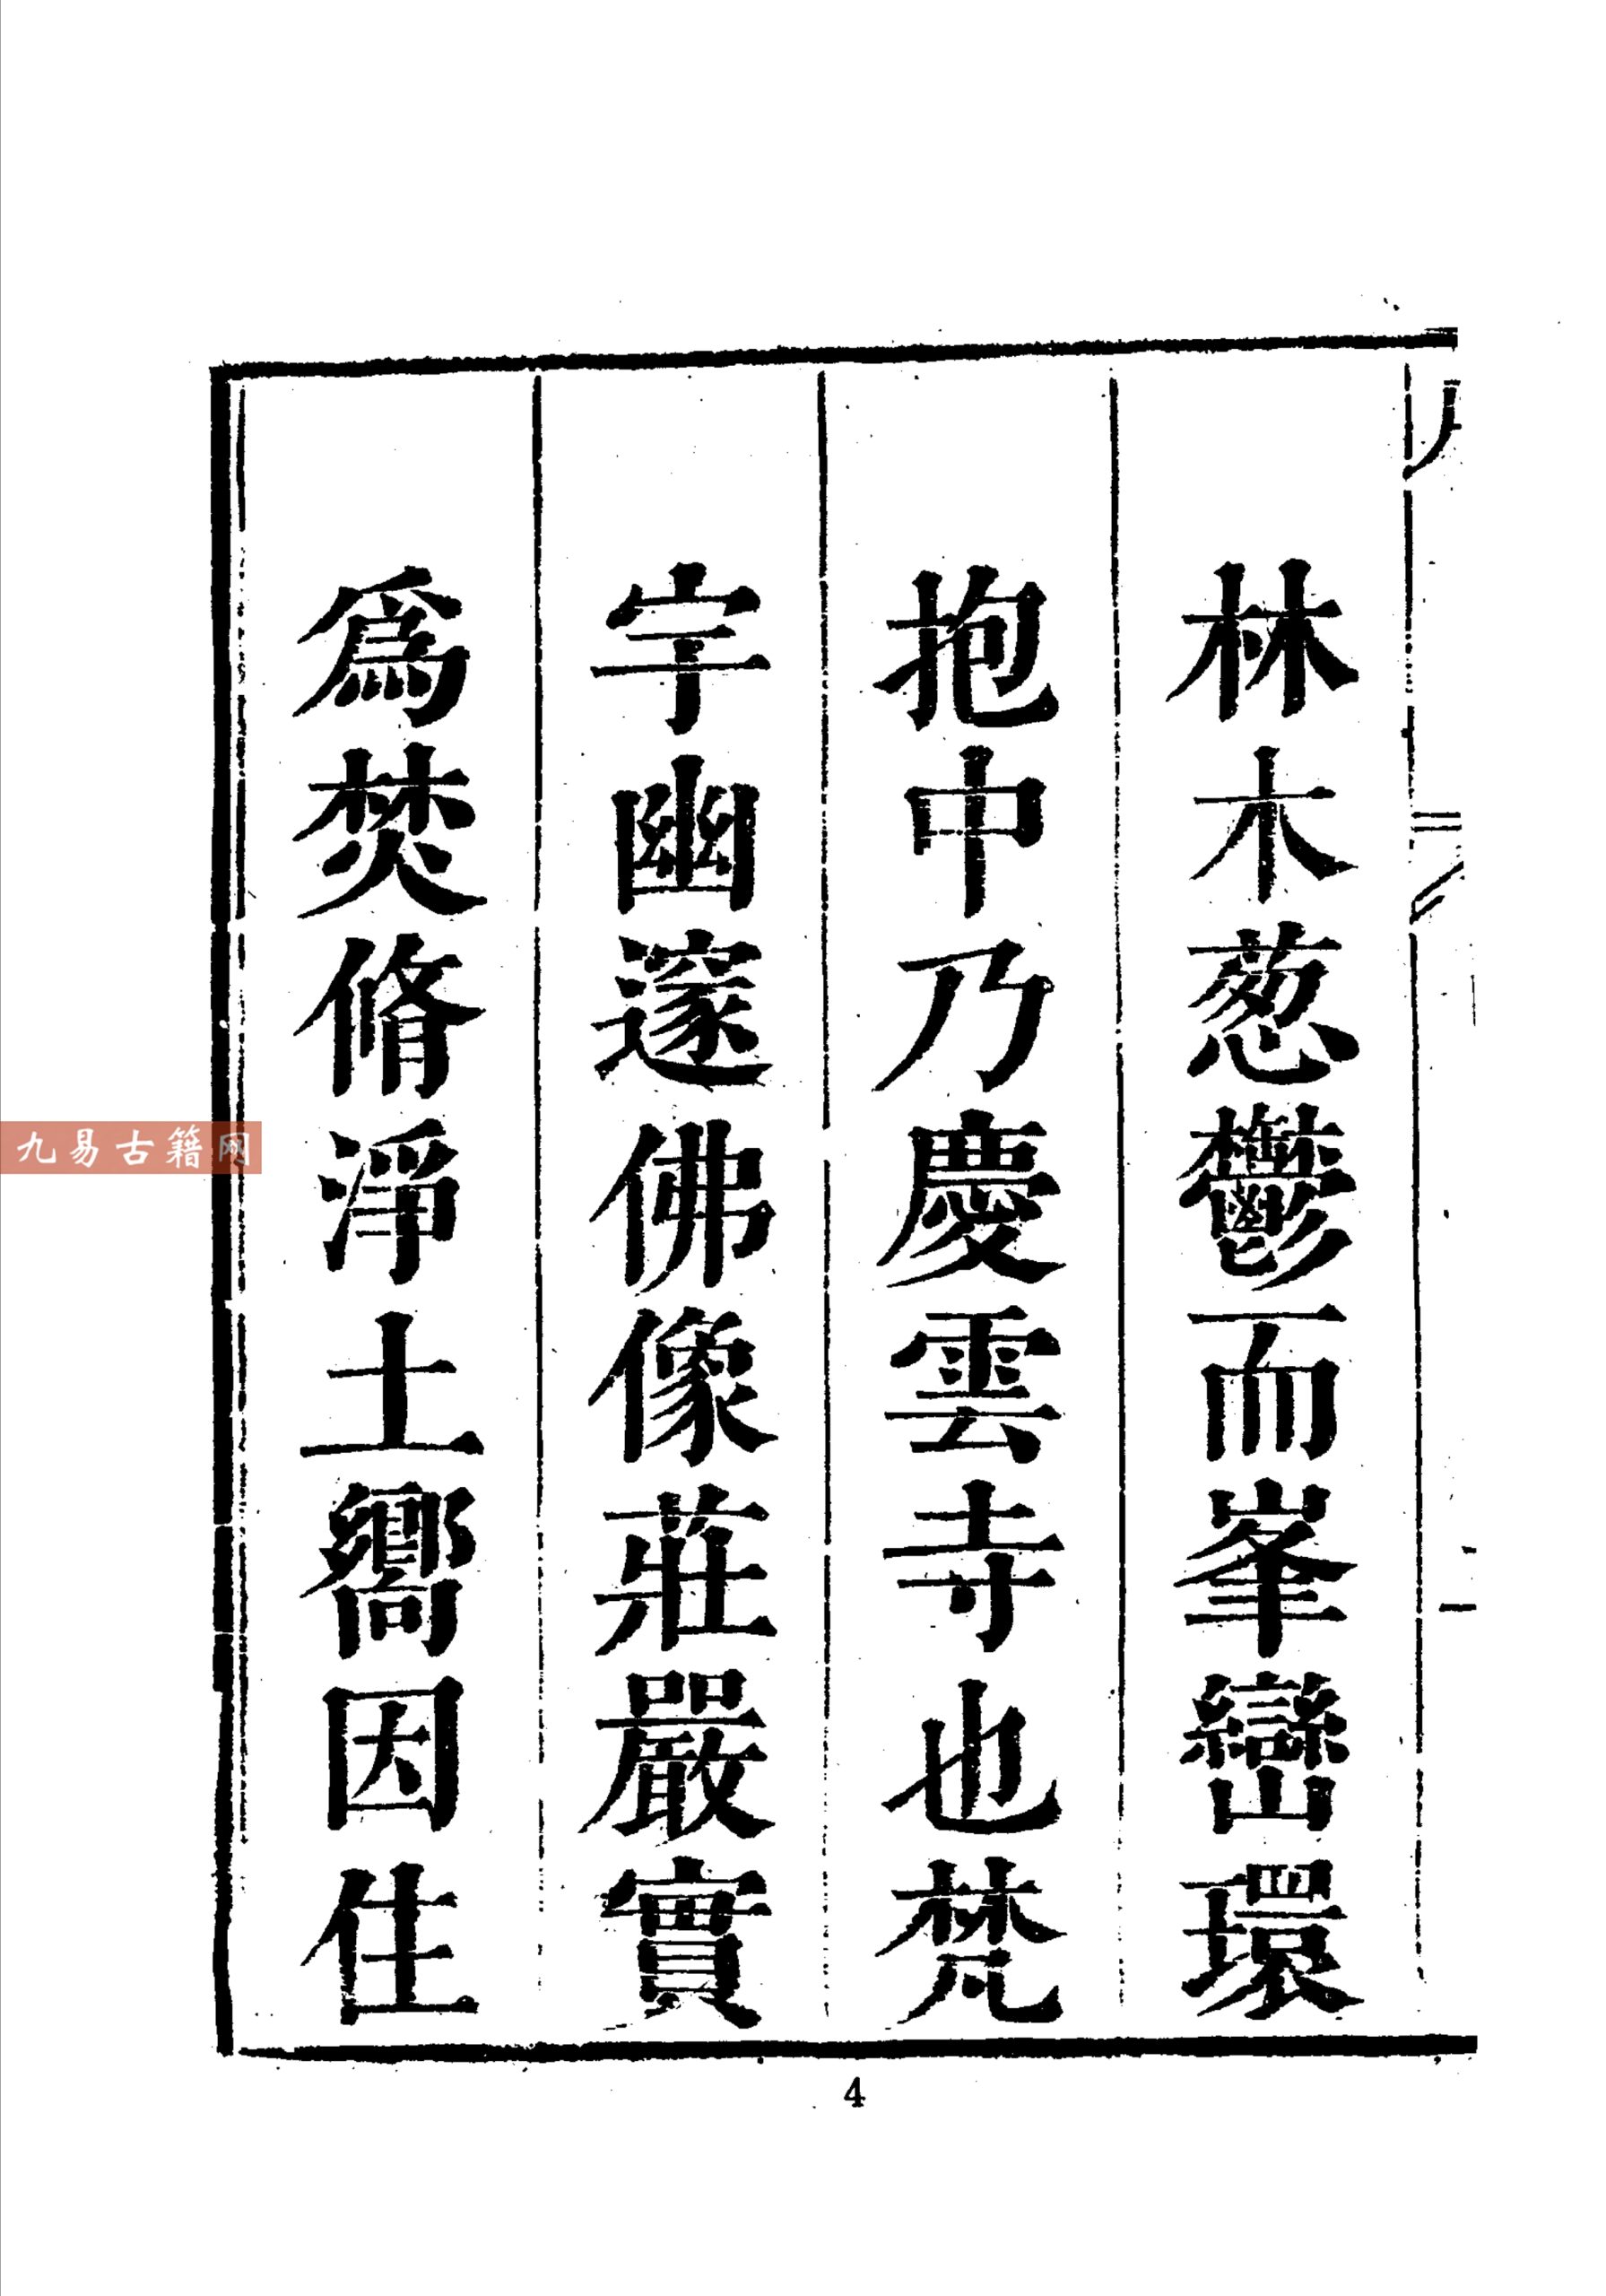 林木葱鬱而峯巒環
抱中乃慶雲寺也梵
宇幽邃佛像莊嚴實
爲焚脩淨土嚮因住
九易古籍网
4